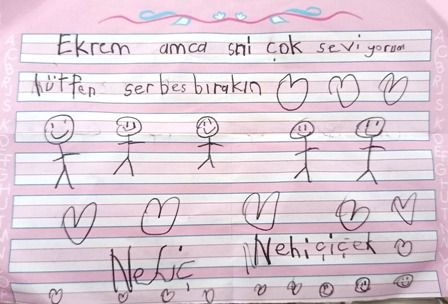 Ekrem amca sni çok seviyorum
lütfen serbes bırakın
Nehiç Nehiçiçek